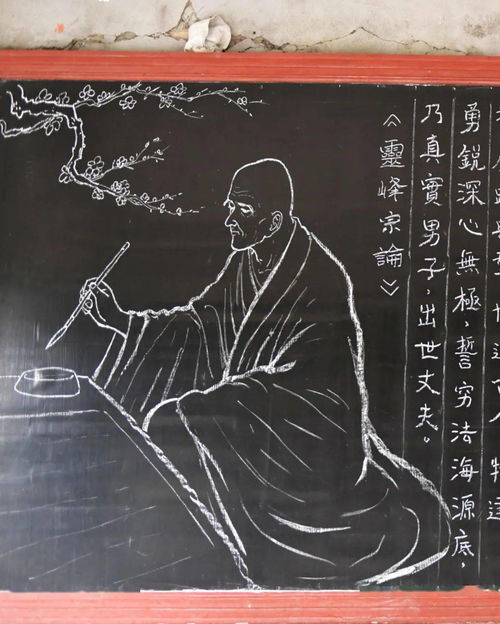 勇銳深心無極，誓穷法海源底，
乃真實男子，出世丈夫。
《靈峰宗論》